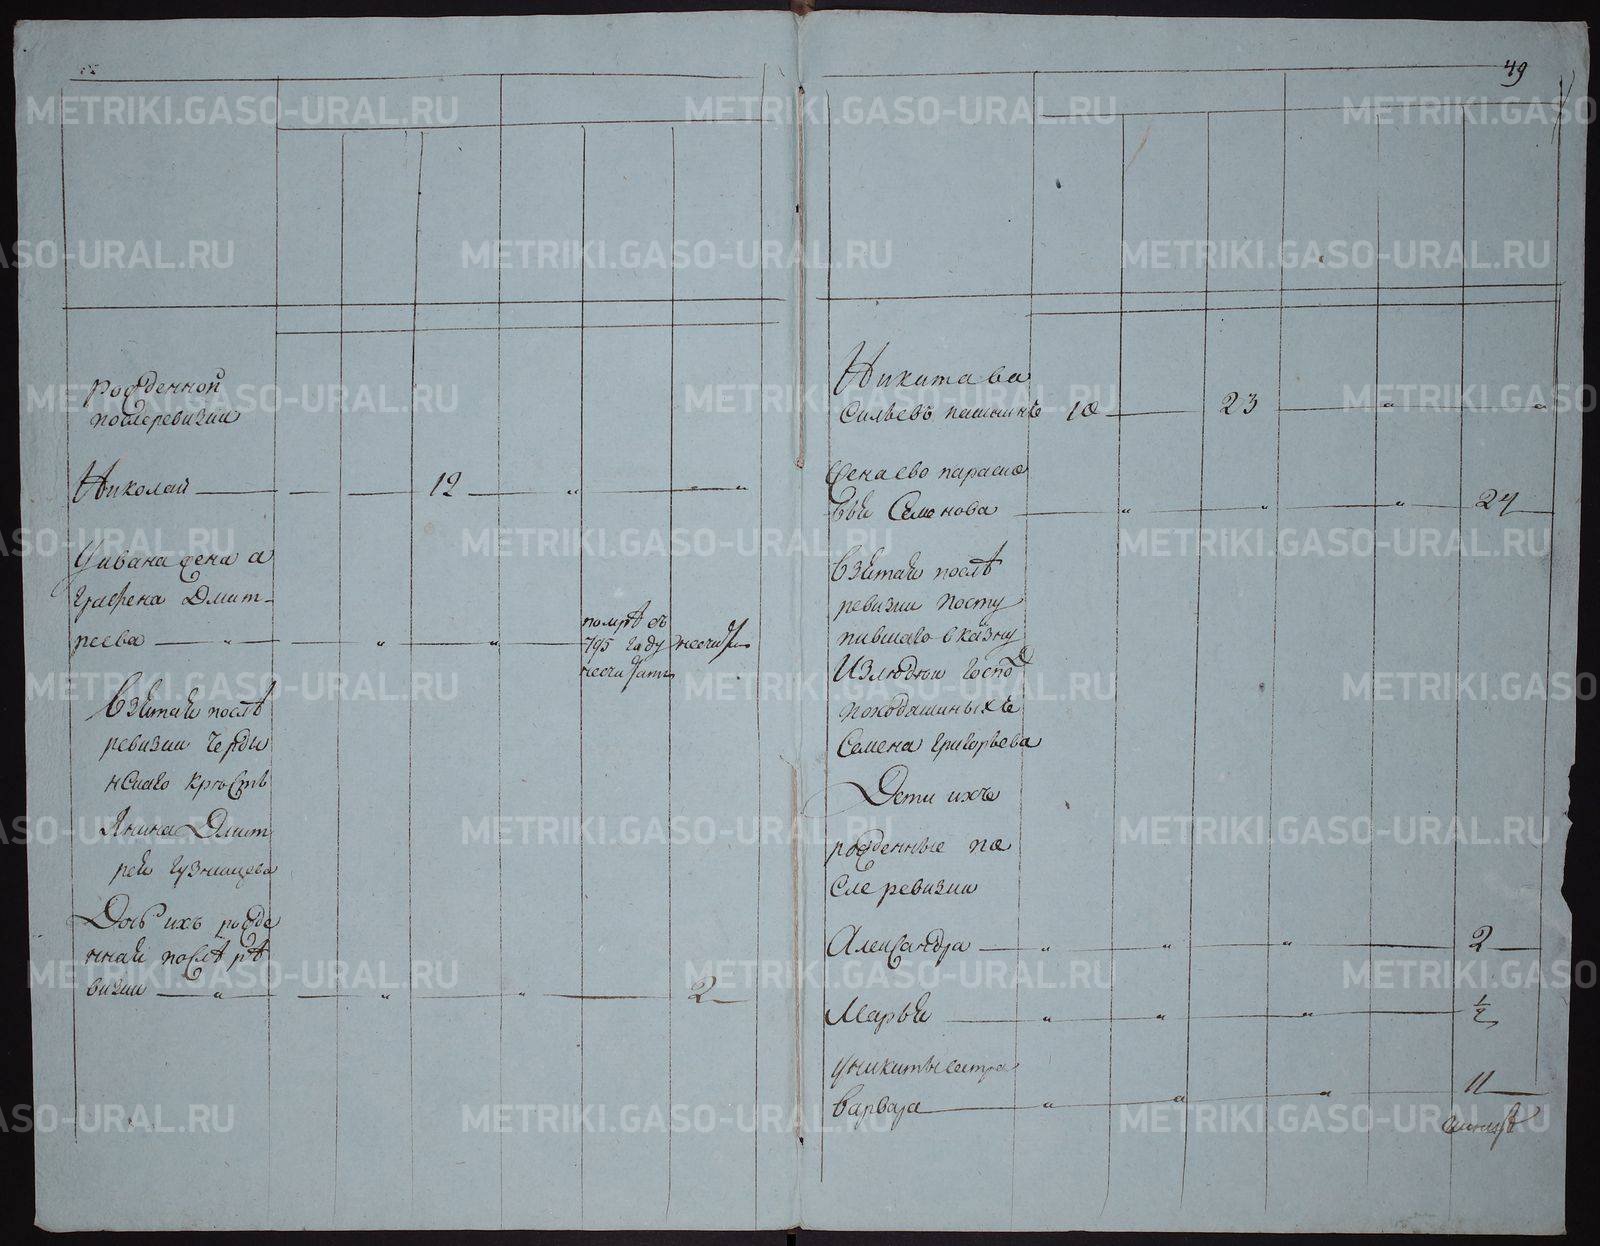 49
рожденной
послеревизии
Николай 12 " "
У ивана жена а
графена Дмит-
реева " " "
помрѣ въ
795 году
Взятая послѣ
ревизии черды
нскаго кресть
янина Дмит
рея
Дочь ихъ рожде
нная послѣ ре
визии " " " 2
Никита ва
сильевъ 10 23 " "
Жена ево параско
вья Семенова " " " 24
Взятая послѣ
ревизии посту
пившаго в казну
Из людей госпо
походяшиныхъ
Семена григорьева
Дети ихъ
рожденные по
сле ревизии
Александра " " " 2
Марья " " " ½
У никиты сестра
варвара " " " 11
METRIKI.GASO-URAL.RU